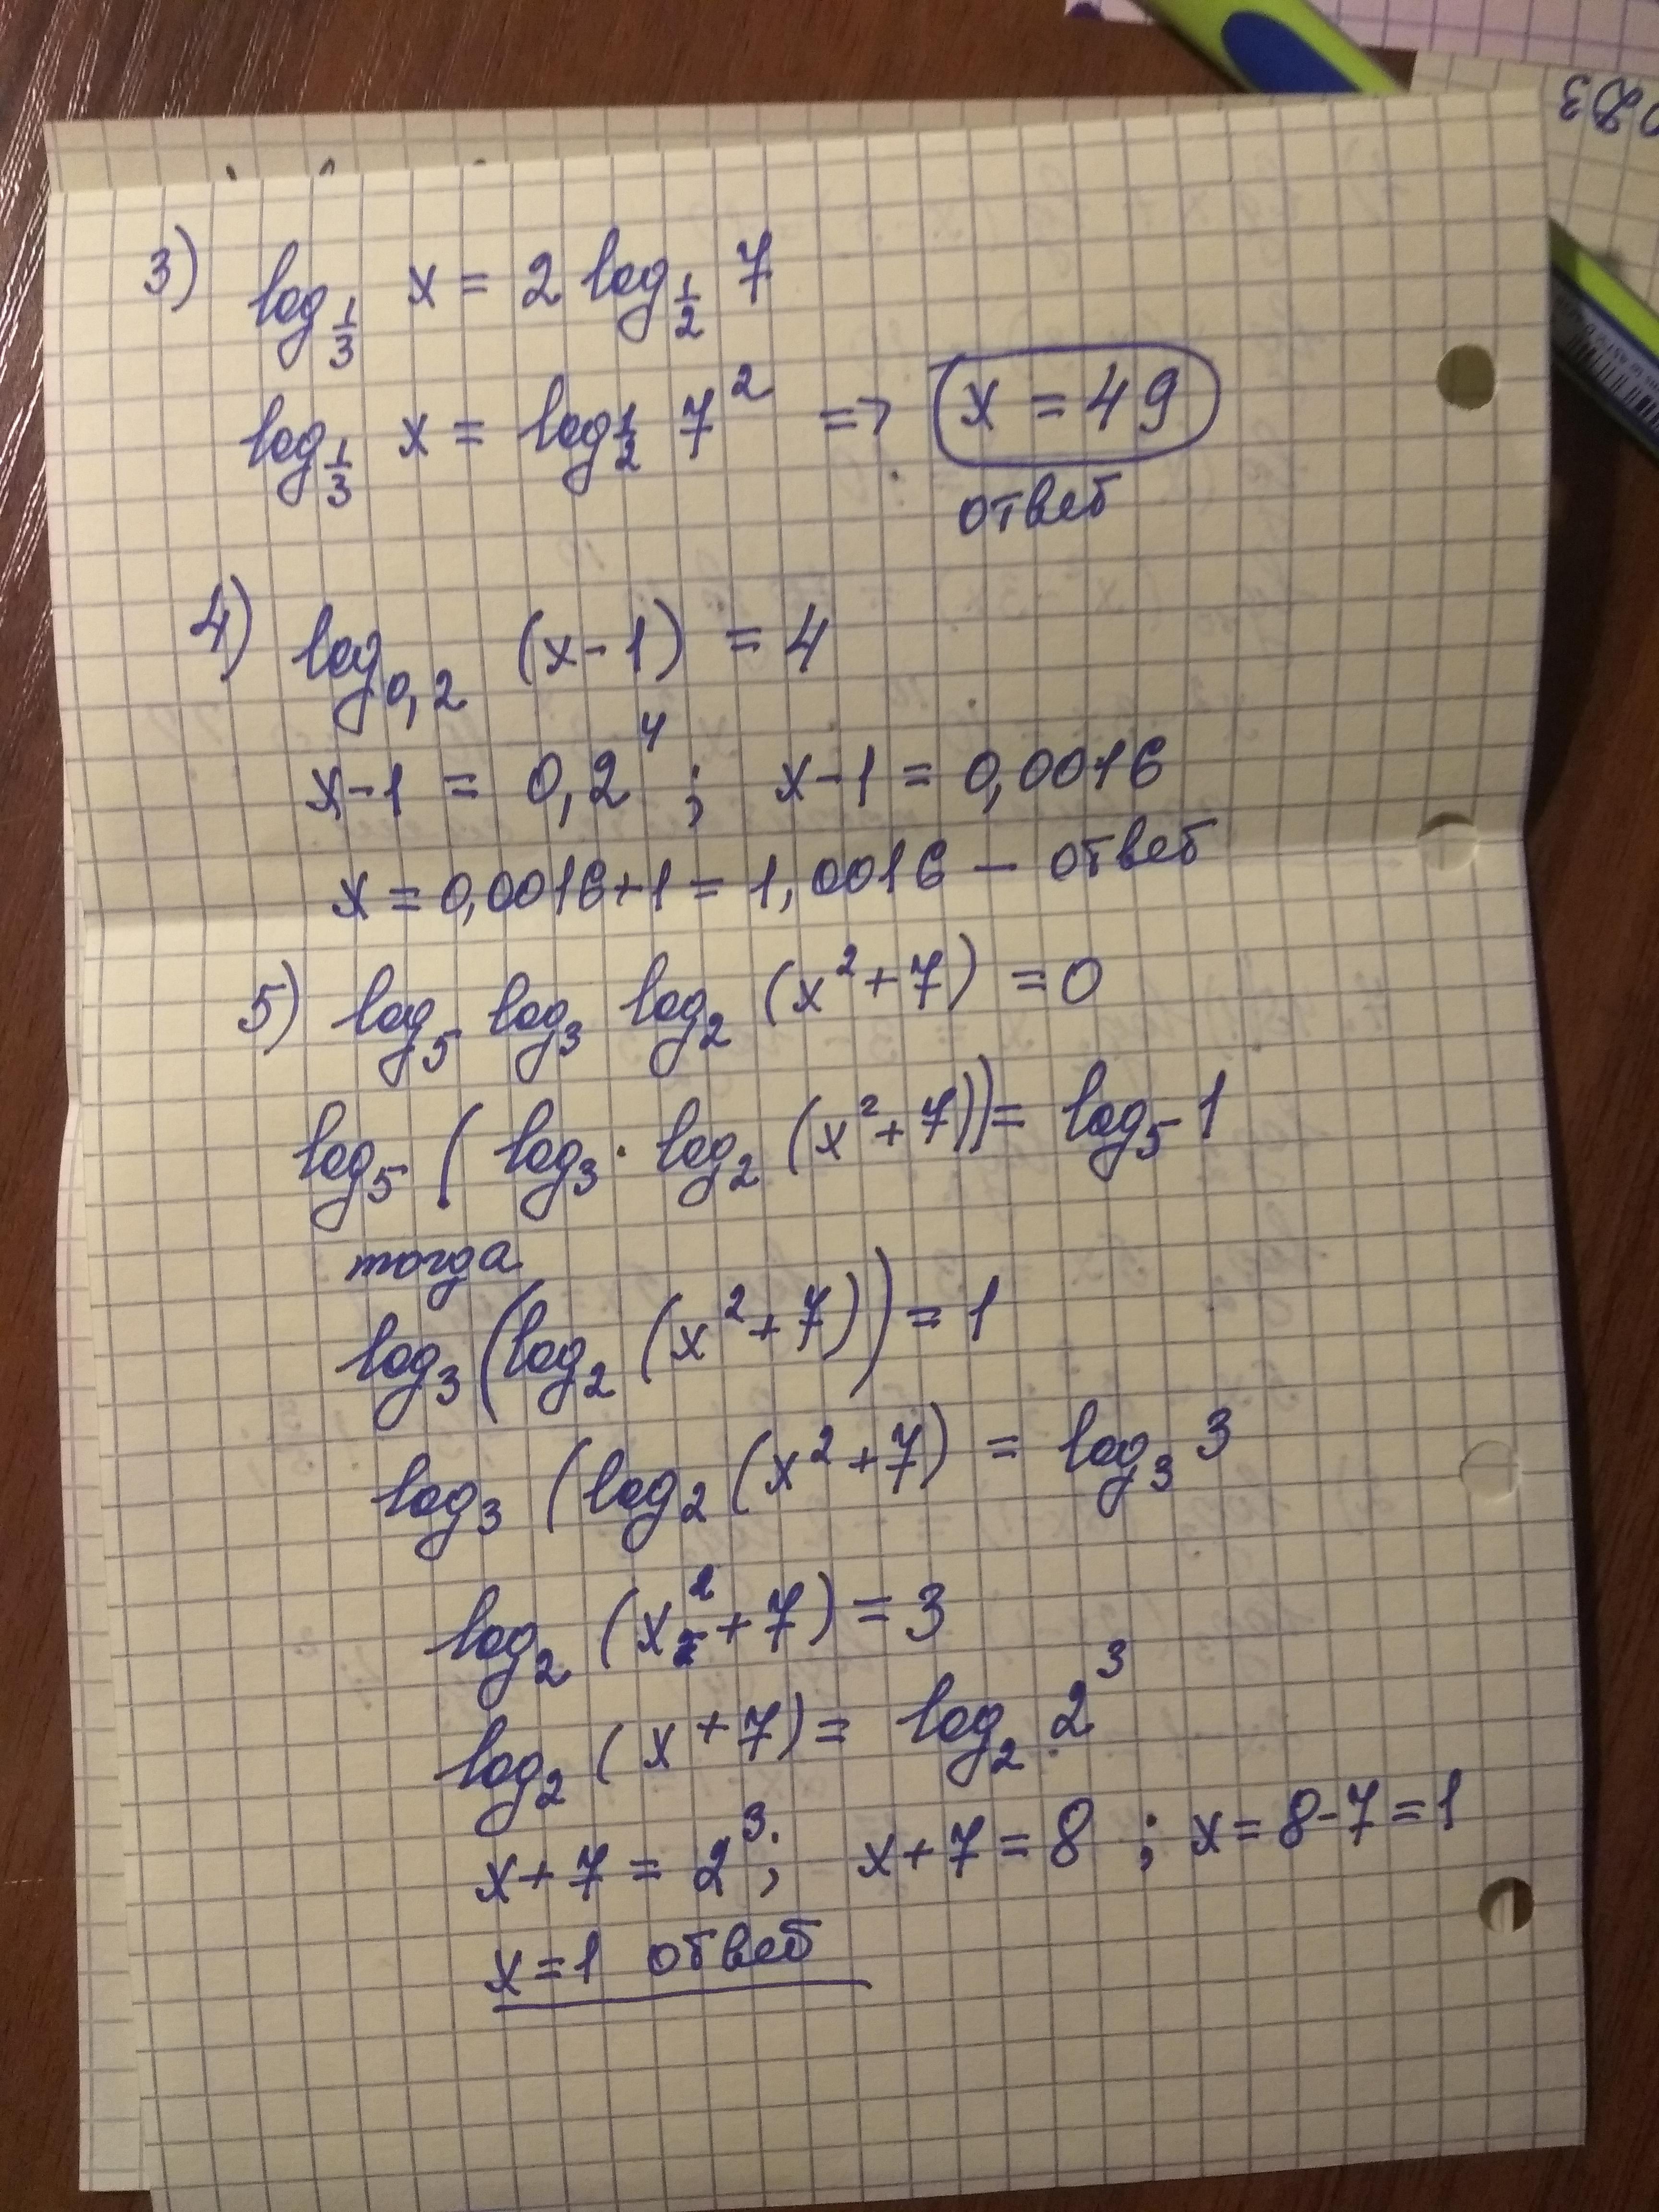 083
3) log_{1/3} x = 2 log_{1/2} 7
log_{1/3} x = log_{1/2} 7² => x = 49
ответ
4) log_{0,2} (x-1) = 4
x-1 = 0,2⁴ ; x-1 = 0,0016
x = 0,0016+1 = 1,0016 — ответ
5) log₅ log₃ log₂ (x²+7) = 0
log₅ ( log₃ · log₂ (x²+7)) = log₅ 1
тогда
log₃ (log₂ (x²+7)) = 1
log₃ (log₂ (x²+7) = log₃ 3
log₂ (x²+7) = 3
log₂ (x+7) = log₂ 2³
x+7 = 2³; x+7 = 8 ; x = 8-7 = 1
x=1 ответ